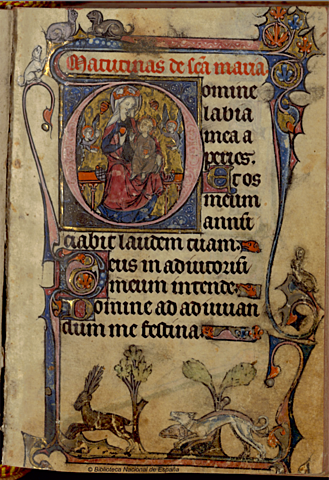 Matutinas de sc̄a maria
omine
labia
mea a
peries.
Et os
meum
annūt
ciabit laudem tuam.
Deus in adiutoriū
meum intende.
Domine ad adiuuan
dum me festina.
© Biblioteca Nacional de España